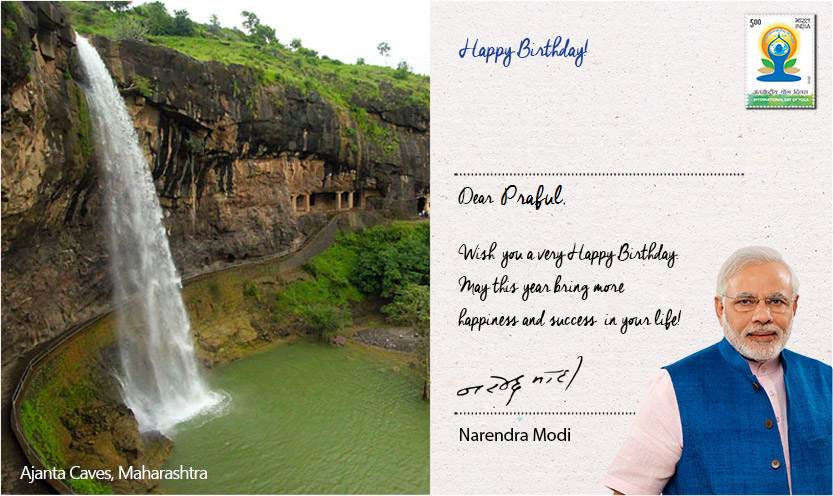 Happy Birthday!
5.00 भारत INDIA
अंतर्राष्ट्रीय योग दिवस
INTERNATIONAL DAY OF YOGA
Dear Praful,
Wish you a very Happy Birthday.
May this year bring more
happiness and success in your life!
नरेन्द्र मोदी
Narendra Modi
Ajanta Caves, Maharashtra